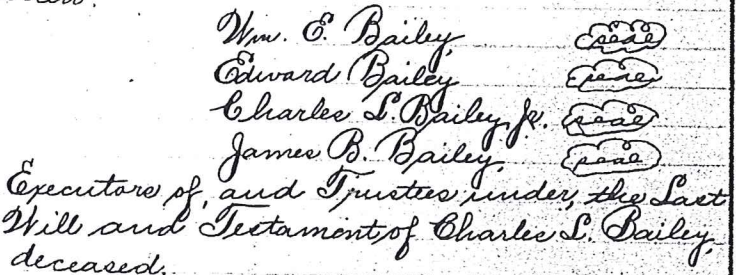 Wm. E. Bailey, (seal)
Edward Bailey (seal)
Charles L. Bailey, Jr. (seal)
James B. Bailey, (seal)
Executors of, and Trustees under, the Last
Will and Testament, of Charles L. Bailey,
deceased.